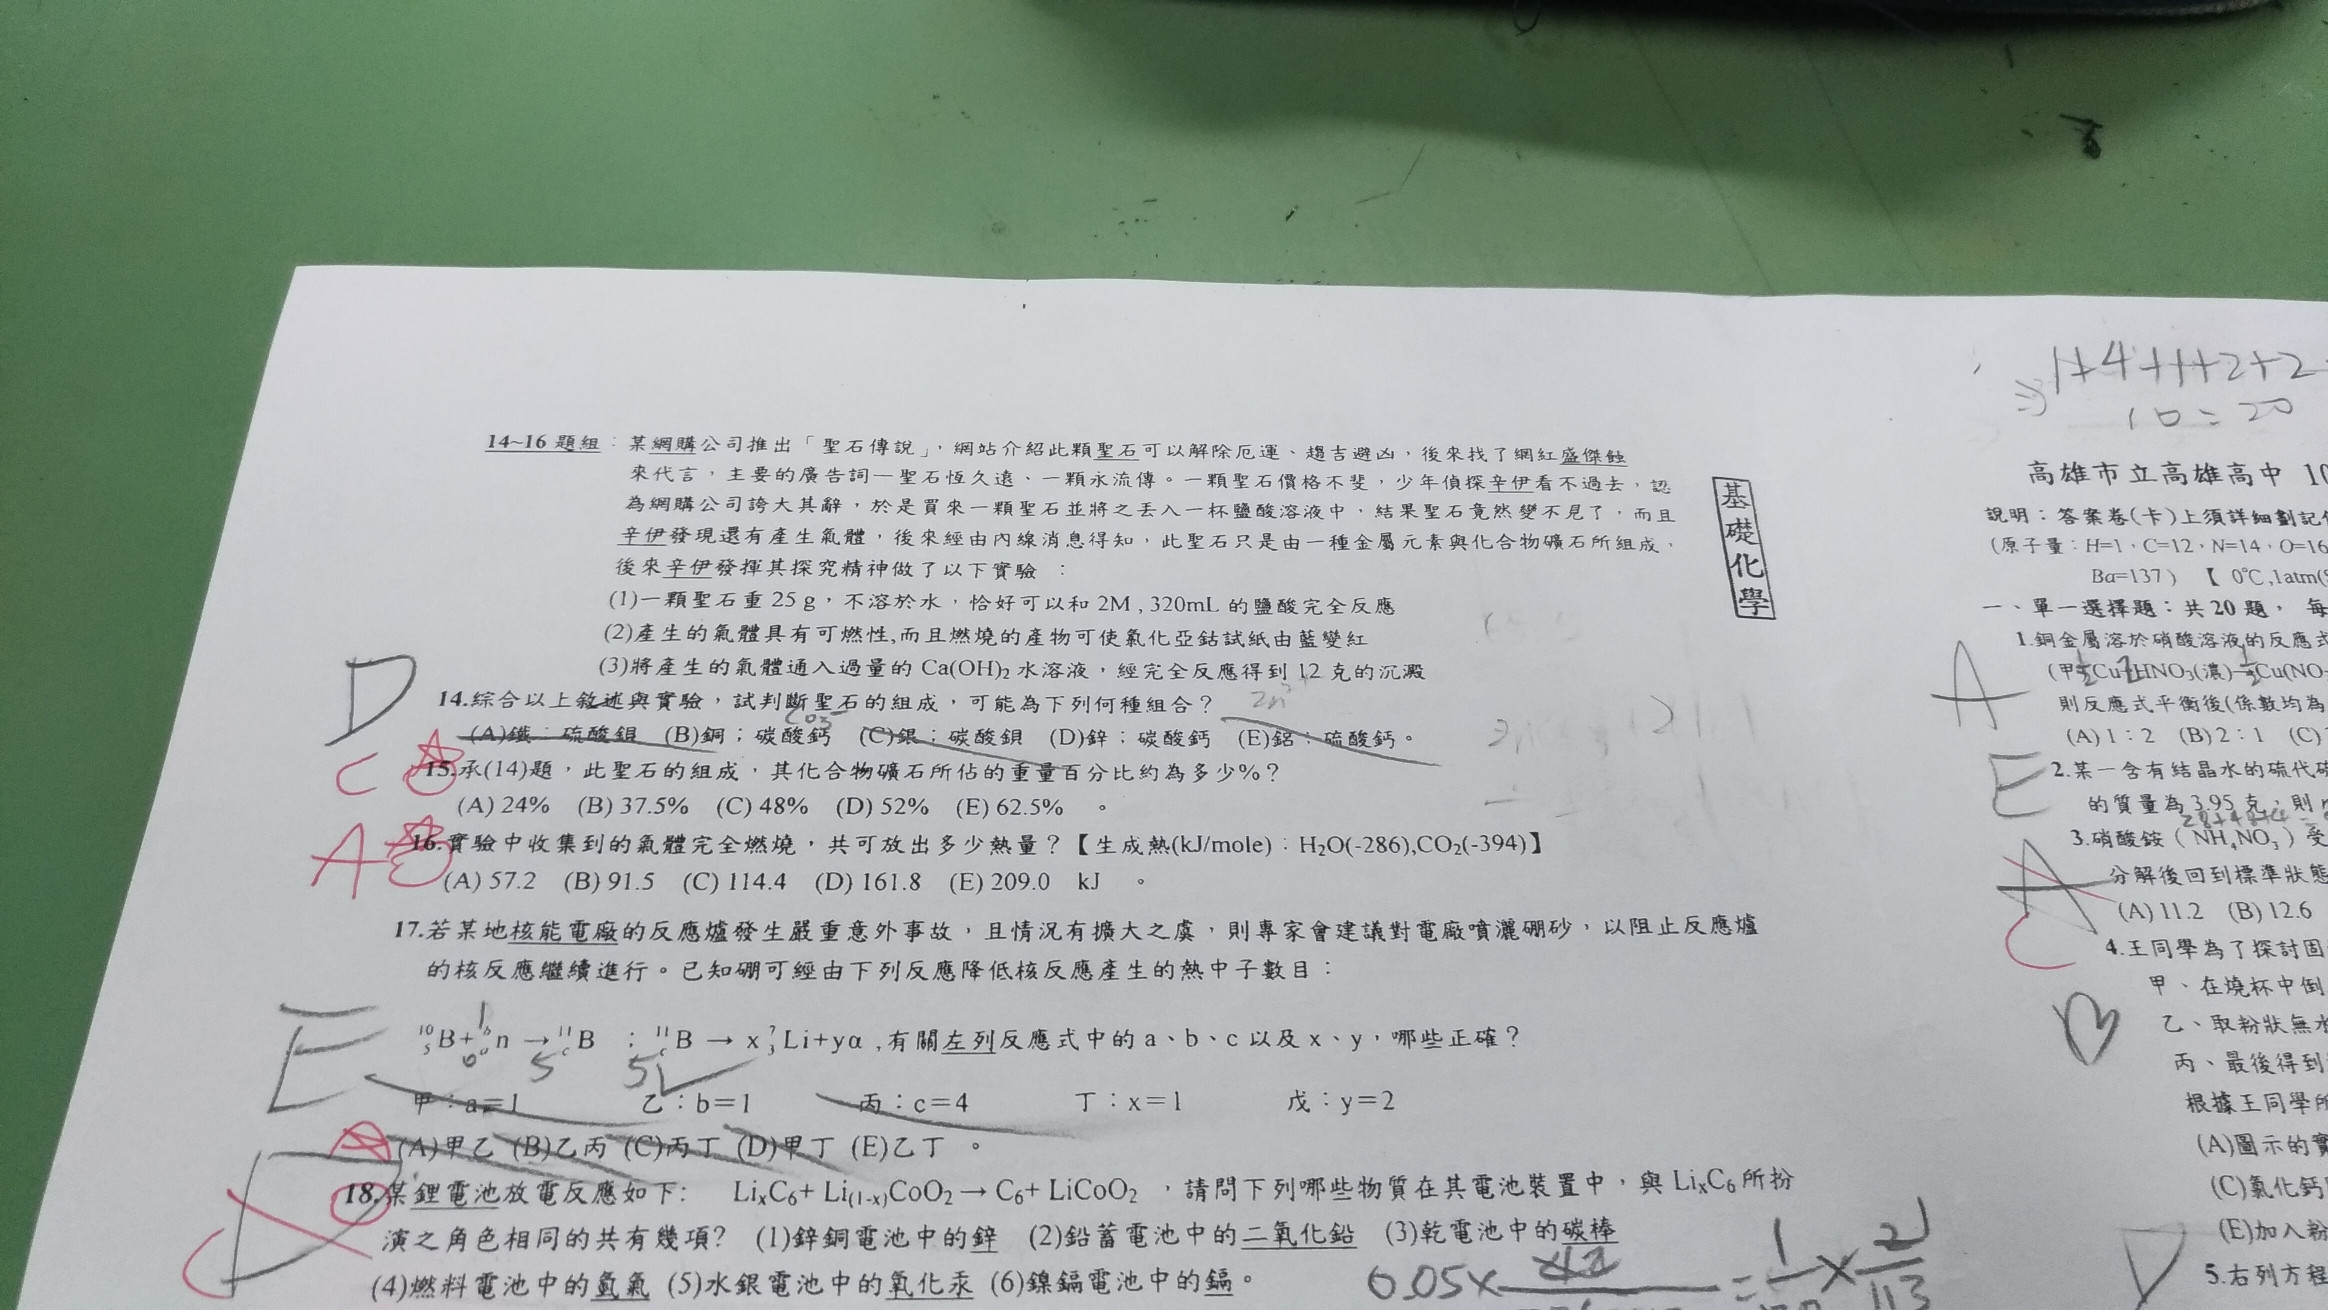 14~16 題組：某網購公司推出「聖石傳說」，網站介紹此顆聖石可以解除厄運、趨吉避凶，後來找了網紅盛傑蝕
來代言，主要的廣告詞—聖石恆久遠、一顆永流傳。一顆聖石價格不斐，少年偵探辛伊看不過去，認
為網購公司誇大其辭，於是買來一顆聖石並將之丟入一杯鹽酸溶液中，結果聖石竟然變不見了，而且
辛伊發現還有產生氣體，後來經由內線消息得知，此聖石只是由一種金屬元素與化合物礦石所組成，
後來辛伊發揮其探究精神做了以下實驗：
(1)一顆聖石重 25 g，不溶於水，恰好可以和 2M , 320mL 的鹽酸完全反應
(2)產生的氣體具有可燃性,而且燃燒的產物可使氯化亞鈷試紙由藍變紅
(3)將產生的氣體通入過量的 Ca(OH)₂ 水溶液，經完全反應得到 12 克的沉澱
D
14.綜合以上敘述與實驗，試判斷聖石的組成，可能為下列何種組合？
(A)鐵；硫酸鋇 (B)銅；碳酸鈣 (C)銀；碳酸鋇 (D)鋅；碳酸鈣 (E)鋁；硫酸鈣。
C
15.承(14)題，此聖石的組成，其化合物礦石所佔的重量百分比約為多少%？
(A) 24% (B) 37.5% (C) 48% (D) 52% (E) 62.5% 。
A
16.實驗中收集到的氣體完全燃燒，共可放出多少熱量？【生成熱(kJ/mole)：H₂O(-286),CO₂(-394)】
(A) 57.2 (B) 91.5 (C) 114.4 (D) 161.8 (E) 209.0 kJ 。
17.若某地核能電廠的反應爐發生嚴重意外事故，且情況有擴大之虞，則專家會建議對電廠噴灑硼砂，以阻止反應爐
的核反應繼續進行。已知硼可經由下列反應降低核反應產生的熱中子數目：
E
¹⁰₅B+ᵇₐn →¹¹꜀B ；¹¹꜀B → x⁷₃Li+yα ,有關左列反應式中的 a、b、c 以及 x、y，哪些正確？
1
0 5 5
甲：a=1 乙：b=1 丙：c=4 丁：x=1 戊：y=2
(A)甲乙 (B)乙丙 (C)丙丁 (D)甲丁 (E)乙丁 。
18.某鋰電池放電反應如下: LiₓC₆+ Li₍₁₋ₓ₎CoO₂→ C₆+ LiCoO₂ ，請問下列哪些物質在其電池裝置中，與 LiₓC₆ 所扮
演之角色相同的共有幾項? (1)鋅銅電池中的鋅 (2)鉛蓄電池中的二氧化鉛 (3)乾電池中的碳棒
(4)燃料電池中的氫氣 (5)水銀電池中的氧化汞 (6)鎳鎘電池中的鎘。
C
0.05×
基礎化學
1+4+1+2+2
10=20
高雄市立高雄高中 10
說明：答案卷(卡)上須詳細劃記
(原子量：H=1，C=12，N=14，O=16
Ba=137) 【 0℃,1atm(
一、單一選擇題：共 20 題， 每
A
1.銅金屬溶於硝酸溶液的反應式
(甲) Cu+HNO₃(濃)→Cu(NO
則反應式平衡後(係數均為
(A) 1：2 (B) 2：1 (C)
E
2.某一含有結晶水的硫代硫
的質量為 3.95 克，則
A
3.硝酸銨（NH₄NO₃）受
分解後回到標準狀態
(A) 11.2 (B) 12.6
C
4.王同學為了探討固
甲、在燒杯中倒
乙、取粉狀無水
丙、最後得到
根據王同學所
(A)圖示的實
(C)氯化鈣
(E)加入粉
5.右列方程